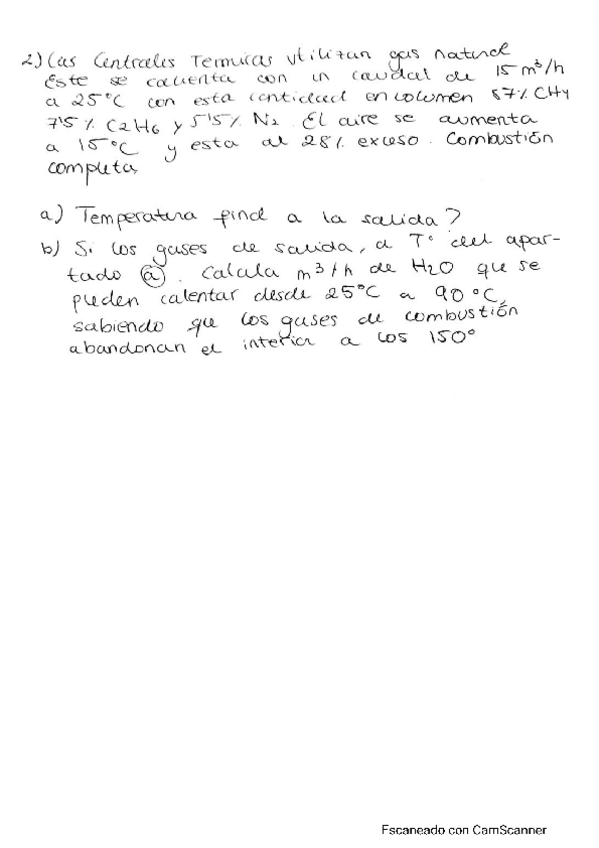 2) Las Centrales Termicas utilizan gas natural
Este se calienta con un caudal de 15 m³/h
a 25°C con esta cantidad en volumen 87% CH4
7'5% C2H6 y 5'5% N2. El aire se aumenta
a 15°C y esta al 28% exceso. Combustión
completa,
a) Temperatura final a la salida?
b) Si los gases de salida, a T° del apar-
tado ⓐ. Calcula m³/h de H2O que se
pueden calentar desde 25°C a 90°C,
sabiendo que los gases de combustión
abandonan el interior a los 150°
Escaneado con CamScanner